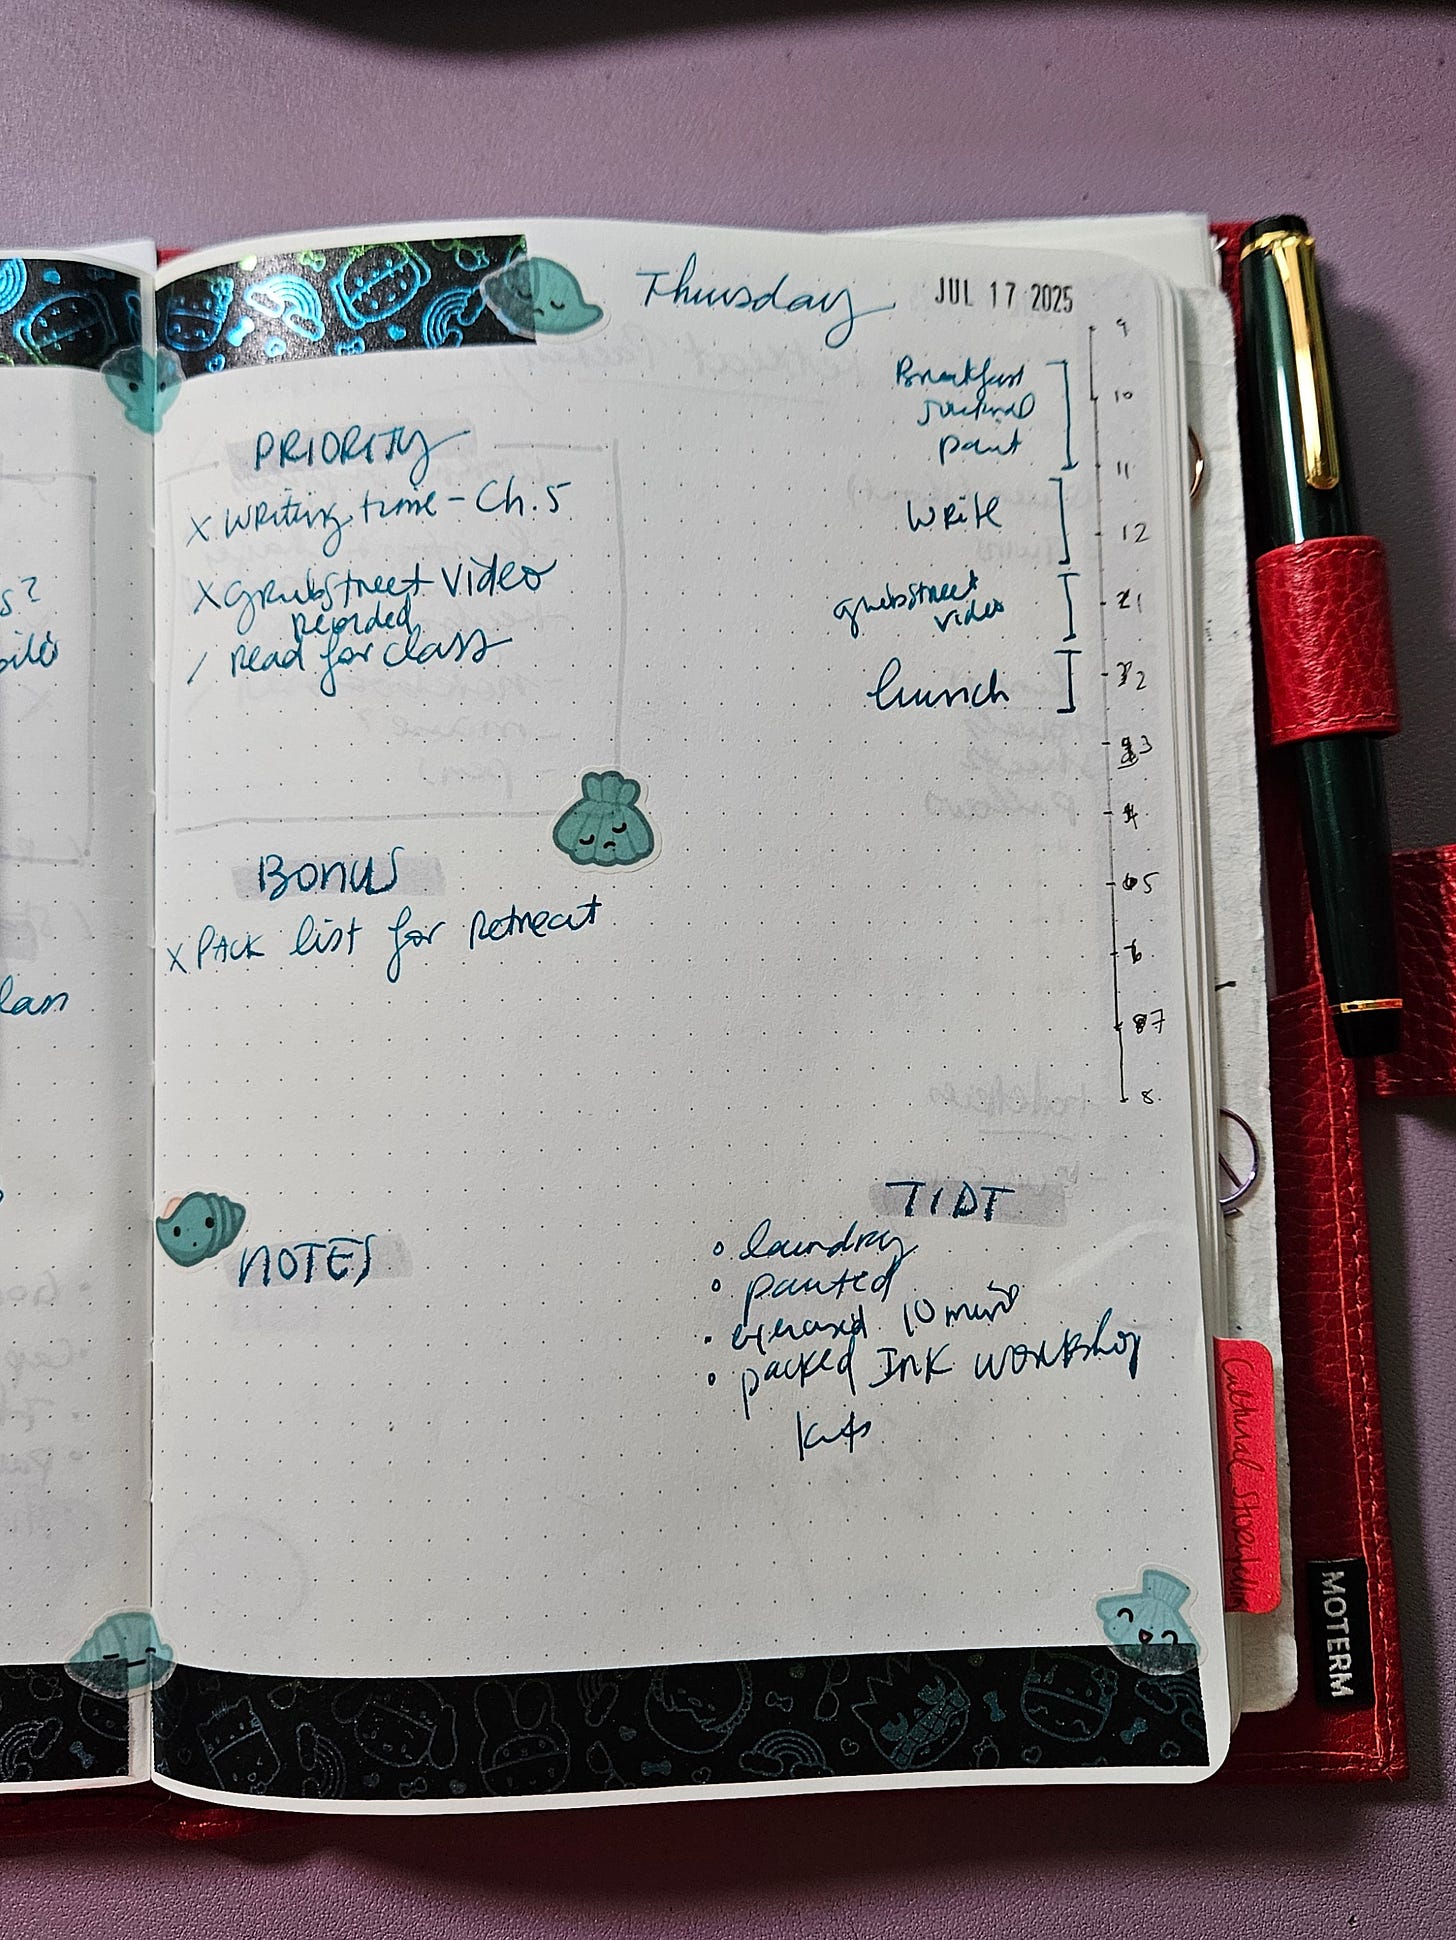 Thursday JUL 17 2025
PRIORITY
X Writing time - Ch. 5
X Grubstreet Video
Recorded
/ Read for class
BONUS
X PACK list for Retreat
NOTES
9
Breakfast
journal
paint
10
11
Write
12
grubstreet
video
1
lunch
2
3
4
5
6
7
8
TIDT
• laundry
• painted
• exercised 10 mins
• packed INK WORKSHOP
kits
Cultural
MOTERM
s?
lan